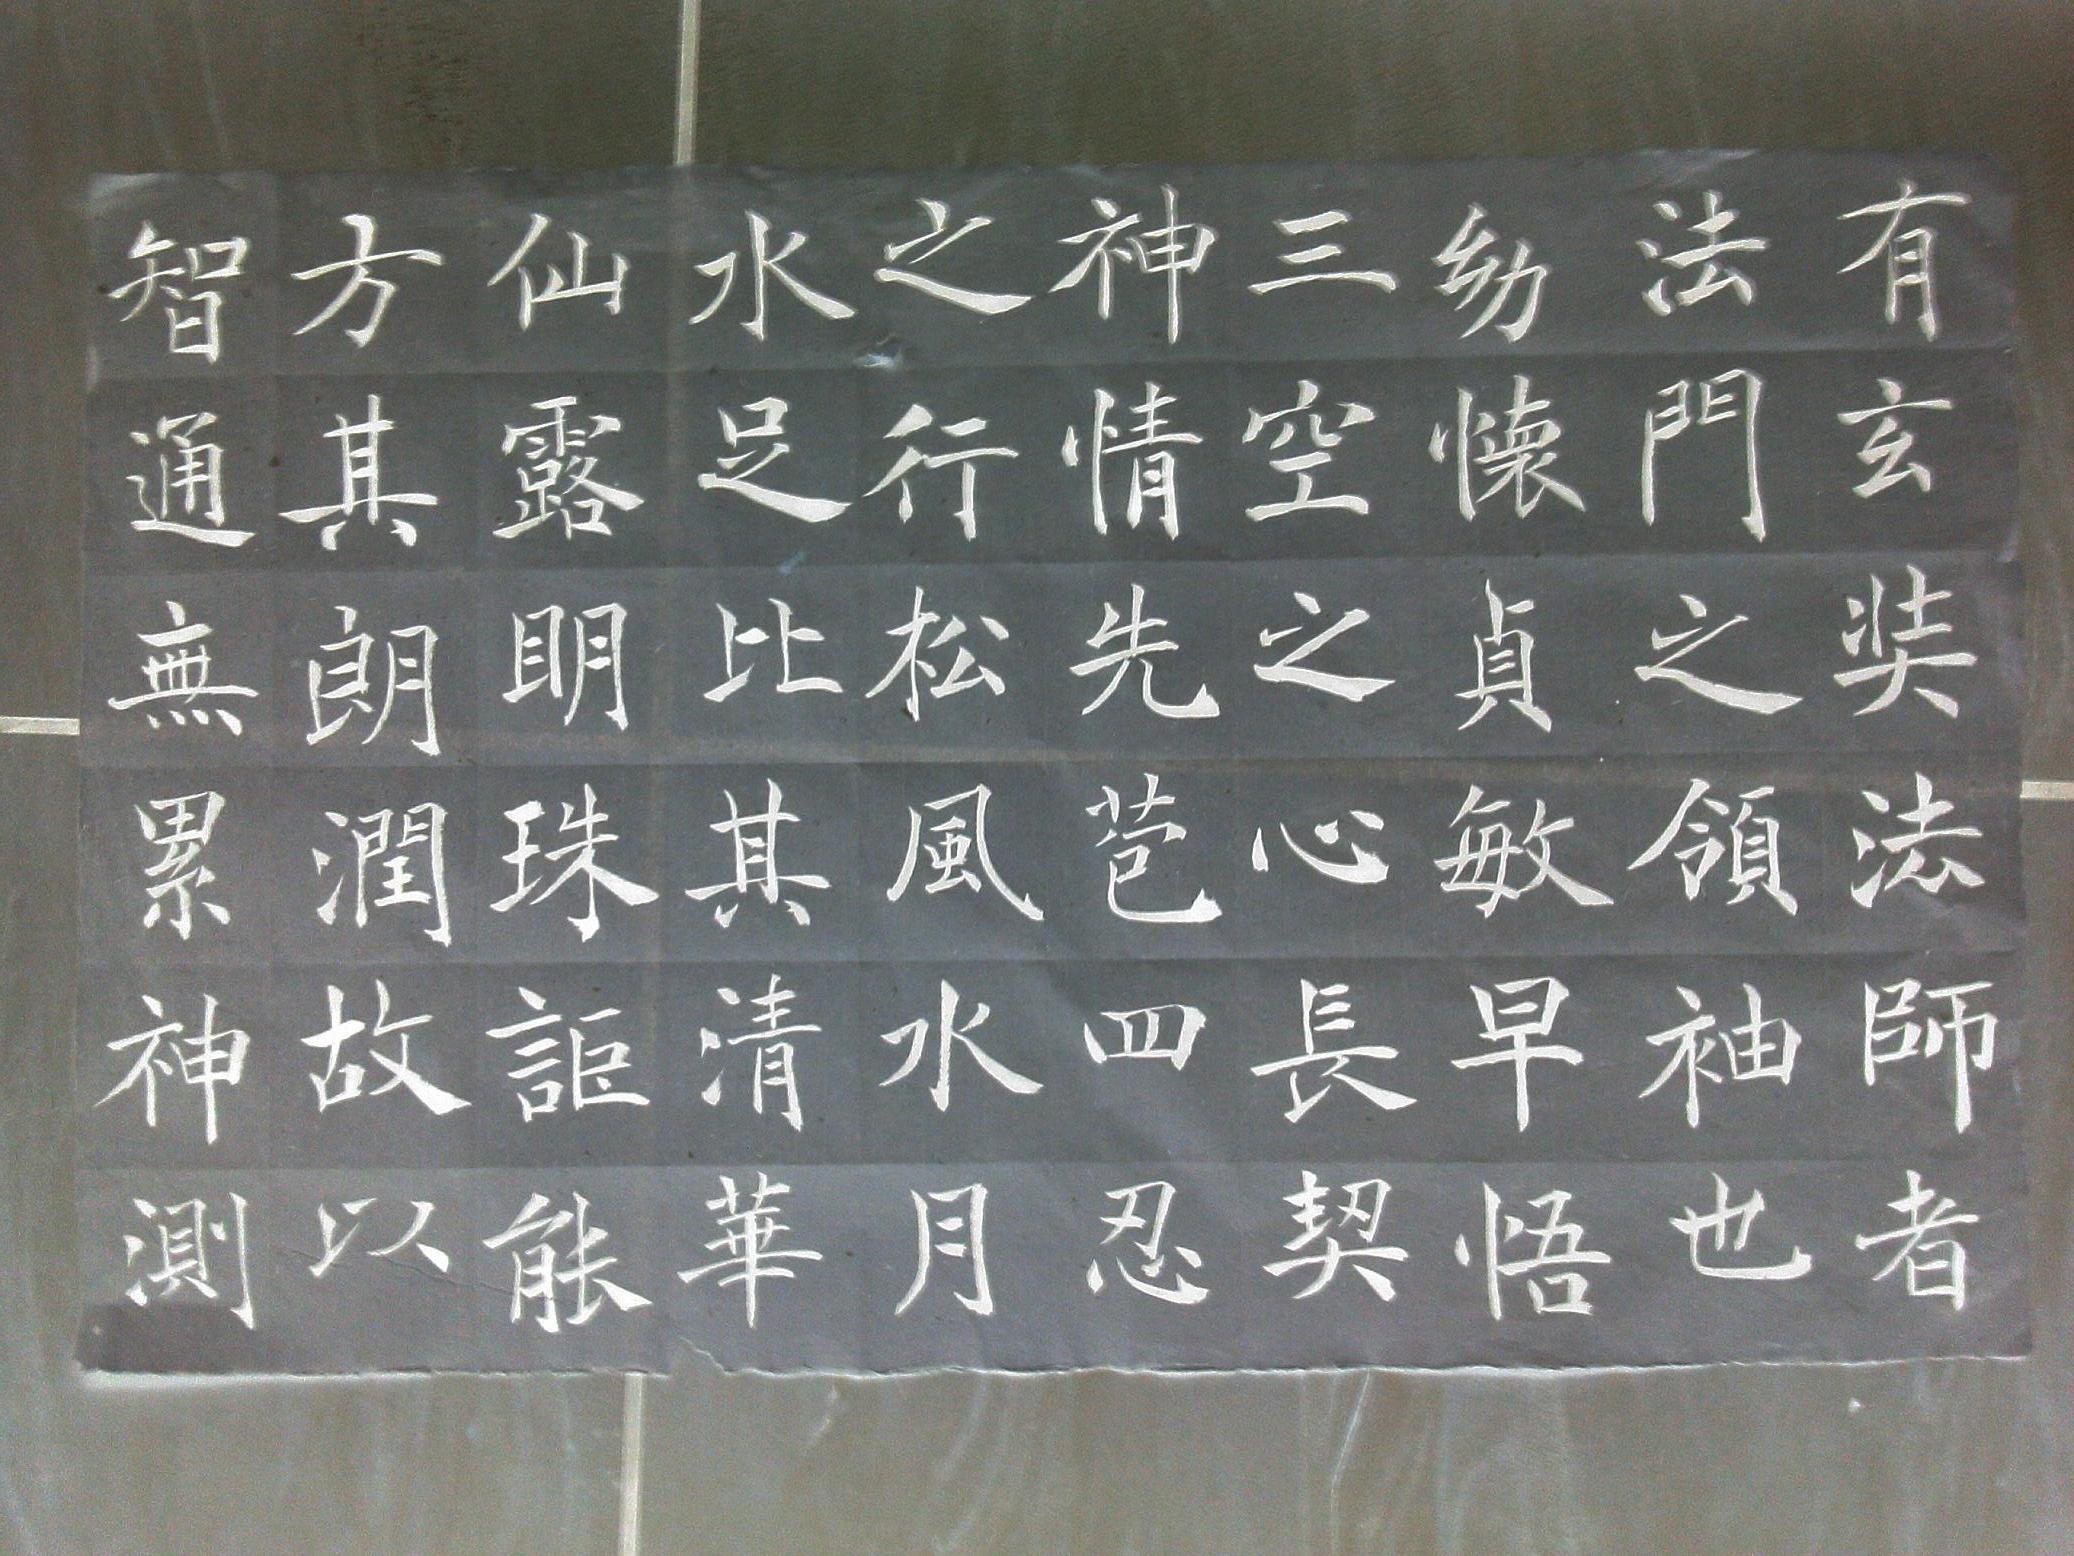 有玄奘法師者
法門之領袖也
幼懷貞敏早悟
三空之心長契
神情先苞四忍
之行松風水月
水足比其清華
仙露明珠詎能
方其朗潤故以
智通無累神測